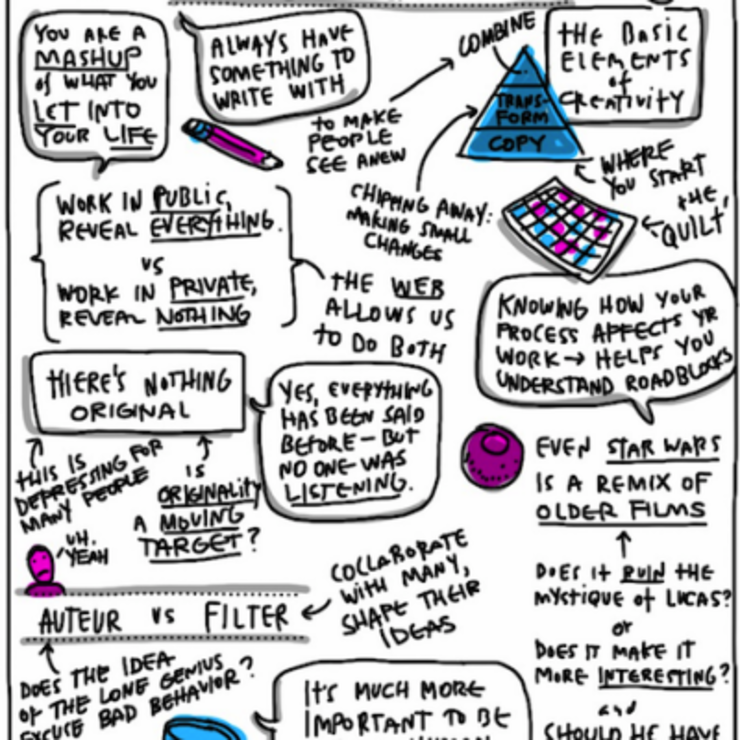 YOU ARE A
MASHUP
of WHAT YOU
LET INTO
YOUR LIFE
ALWAYS HAVE
SOMETHING TO
WRITE WITH
to MAKE
PEOPLE
SEE ANEW
COMBINE
TRANS-
FORM
COPY
tHE BASIC
ELEMENTS
of
CREATIVITY
CHIPPING AWAY:
MAKING SMALL
CHANGES
WHERE
YOU START
tHE
'QUILT'
WORK IN PUBLIC,
REVEAL EVERYTHING.
VS
WORK IN PRIVATE,
REVEAL NOTHING
tHE WEB
ALLOWS US
to DO BOTH
KNOWING HOW YOUR
PROCESS AFFECTS YR
WORK → HELPS YOU
UNDERSTAND ROADBLOCKS
tHERE'S NOTHING
ORIGINAL
YES, EVERYTHING
HAS BEEN SAID
BEFORE – BUT
NO ONE WAS
LISTENING.
tHIS IS
DEPRESSING FOR
MANY PEOPLE
UH.
YEAH
IS
ORIGINALITY
A MOVING
TARGET?
EVEN STAR WARS
IS A REMIX OF
OLDER FILMS
DOES It RUIN tHE
MYSTIQUE of LUCAS?
or
DOES IT MAKE IT
MORE INTERESTING?
and
SHOULD HE HAVE
AUTEUR VS FILTER
COLLABORATE
WITH MANY,
SHAPE THEIR
IDEAS
DOES THE IDEA
Of THE LONE GENIUS
EXCUSE BAD BEHAVIOR?
It's MUCH MORE
IMPORTANT TO BE